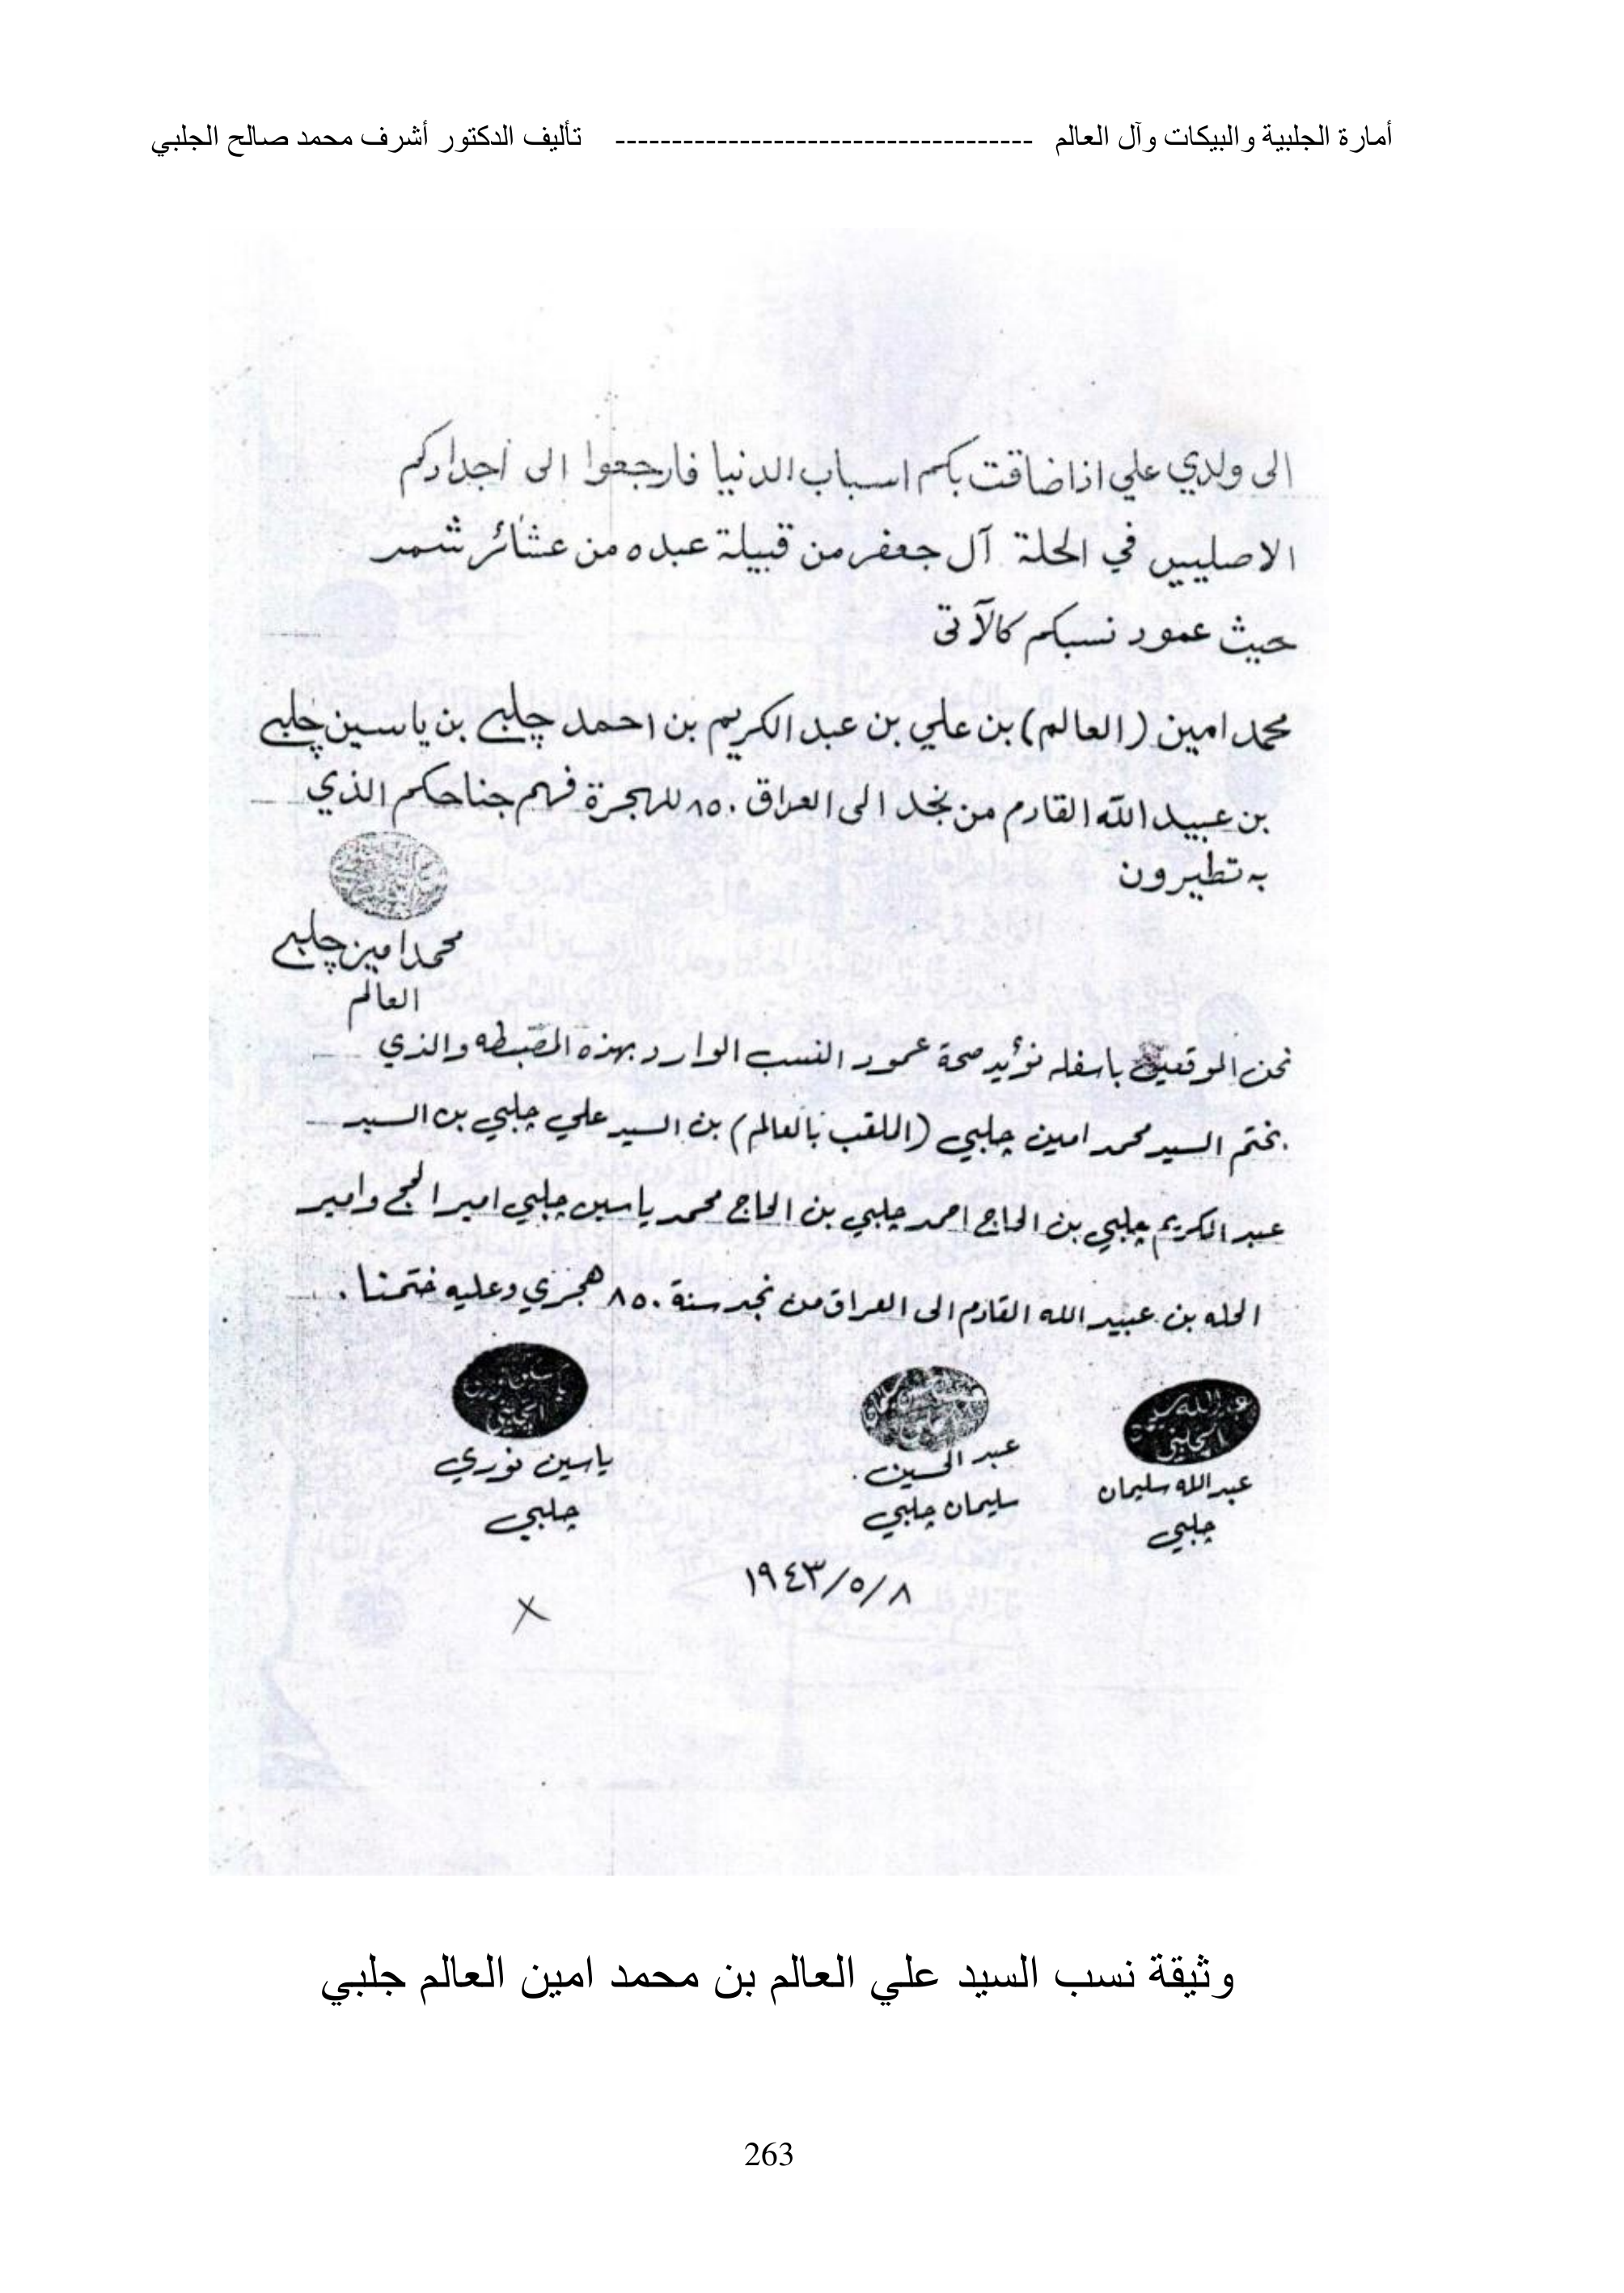 أمارة الجلبية والبيكات وآل العالم ------------------------------------- تأليف الدكتور أشرف محمد صالح الجلبي
الى ولدي علي اذا ضاقت بكم اسباب الدنيا فارجعوا الى اجدادكم
الاصليين في الحلة آل جعفر من قبيلة عبده من عشائر شمر
حيث عمود نسبكم كالآتى
محمد امين (العالم) بن علي بن عبد الكريم بن احمد چلبي بن ياسين چلبي
بن عبيد الله القادم من نجد الى العراق ٨٥٠ للهجرة فهم جناحكم الذي
به تطيرون
محمد امين چلبي
العالم
نحن الموقعين باسفله نؤيد صحة عمود النسب الوارد بهذه المضبطه والذي
بختم السيد محمد امين چلبي (اللقب بالعالم) بن السيد علي چلبي بن السيد
عبد الكريم چلبي بن الحاج احمد چلبي بن الحاج محمد ياسين چلبي امير الحج وامير
الحله بن عبيد الله القادم الى العراق من نجد سنة ٨٥٠ هجري وعليه ختمنا .
عبد الله سليمان
چلبي
عبد الحسين
سليمان چلبي
ياسين نوري
چلبي
١٩٤٣/٥/٨
وثيقة نسب السيد علي العالم بن محمد امين العالم جلبي
263